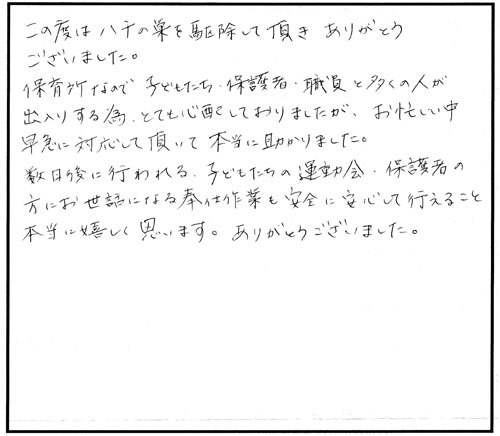 この度はハチの巣を駆除して頂き ありがとう
ございました。
保育所なので 子どもたち・保護者・職員と多くの人が
出入りする為、とても心配しておりましたが、お忙しい中
早急に対応して頂いて 本当に助かりました。
数日後に行われる、子どもたちの運動会・保護者の
方にお世話になる奉仕作業も安全に安心して行えること
本当に嬉しく思います。ありがとうございました。